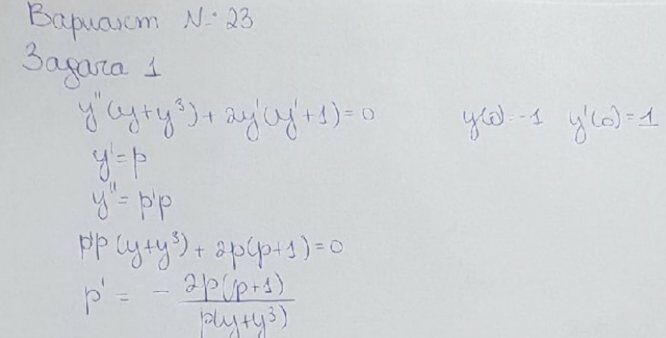 Вариант №: 23
Задача 1
y''(y+y³)+2y'(y'+1)=0 y(0)=-1 y'(0)=1
y'=p
y''=p'p
p'p(y+y³)+2p(p+1)=0
p' = - 2p(p+1) / p(y+y³)